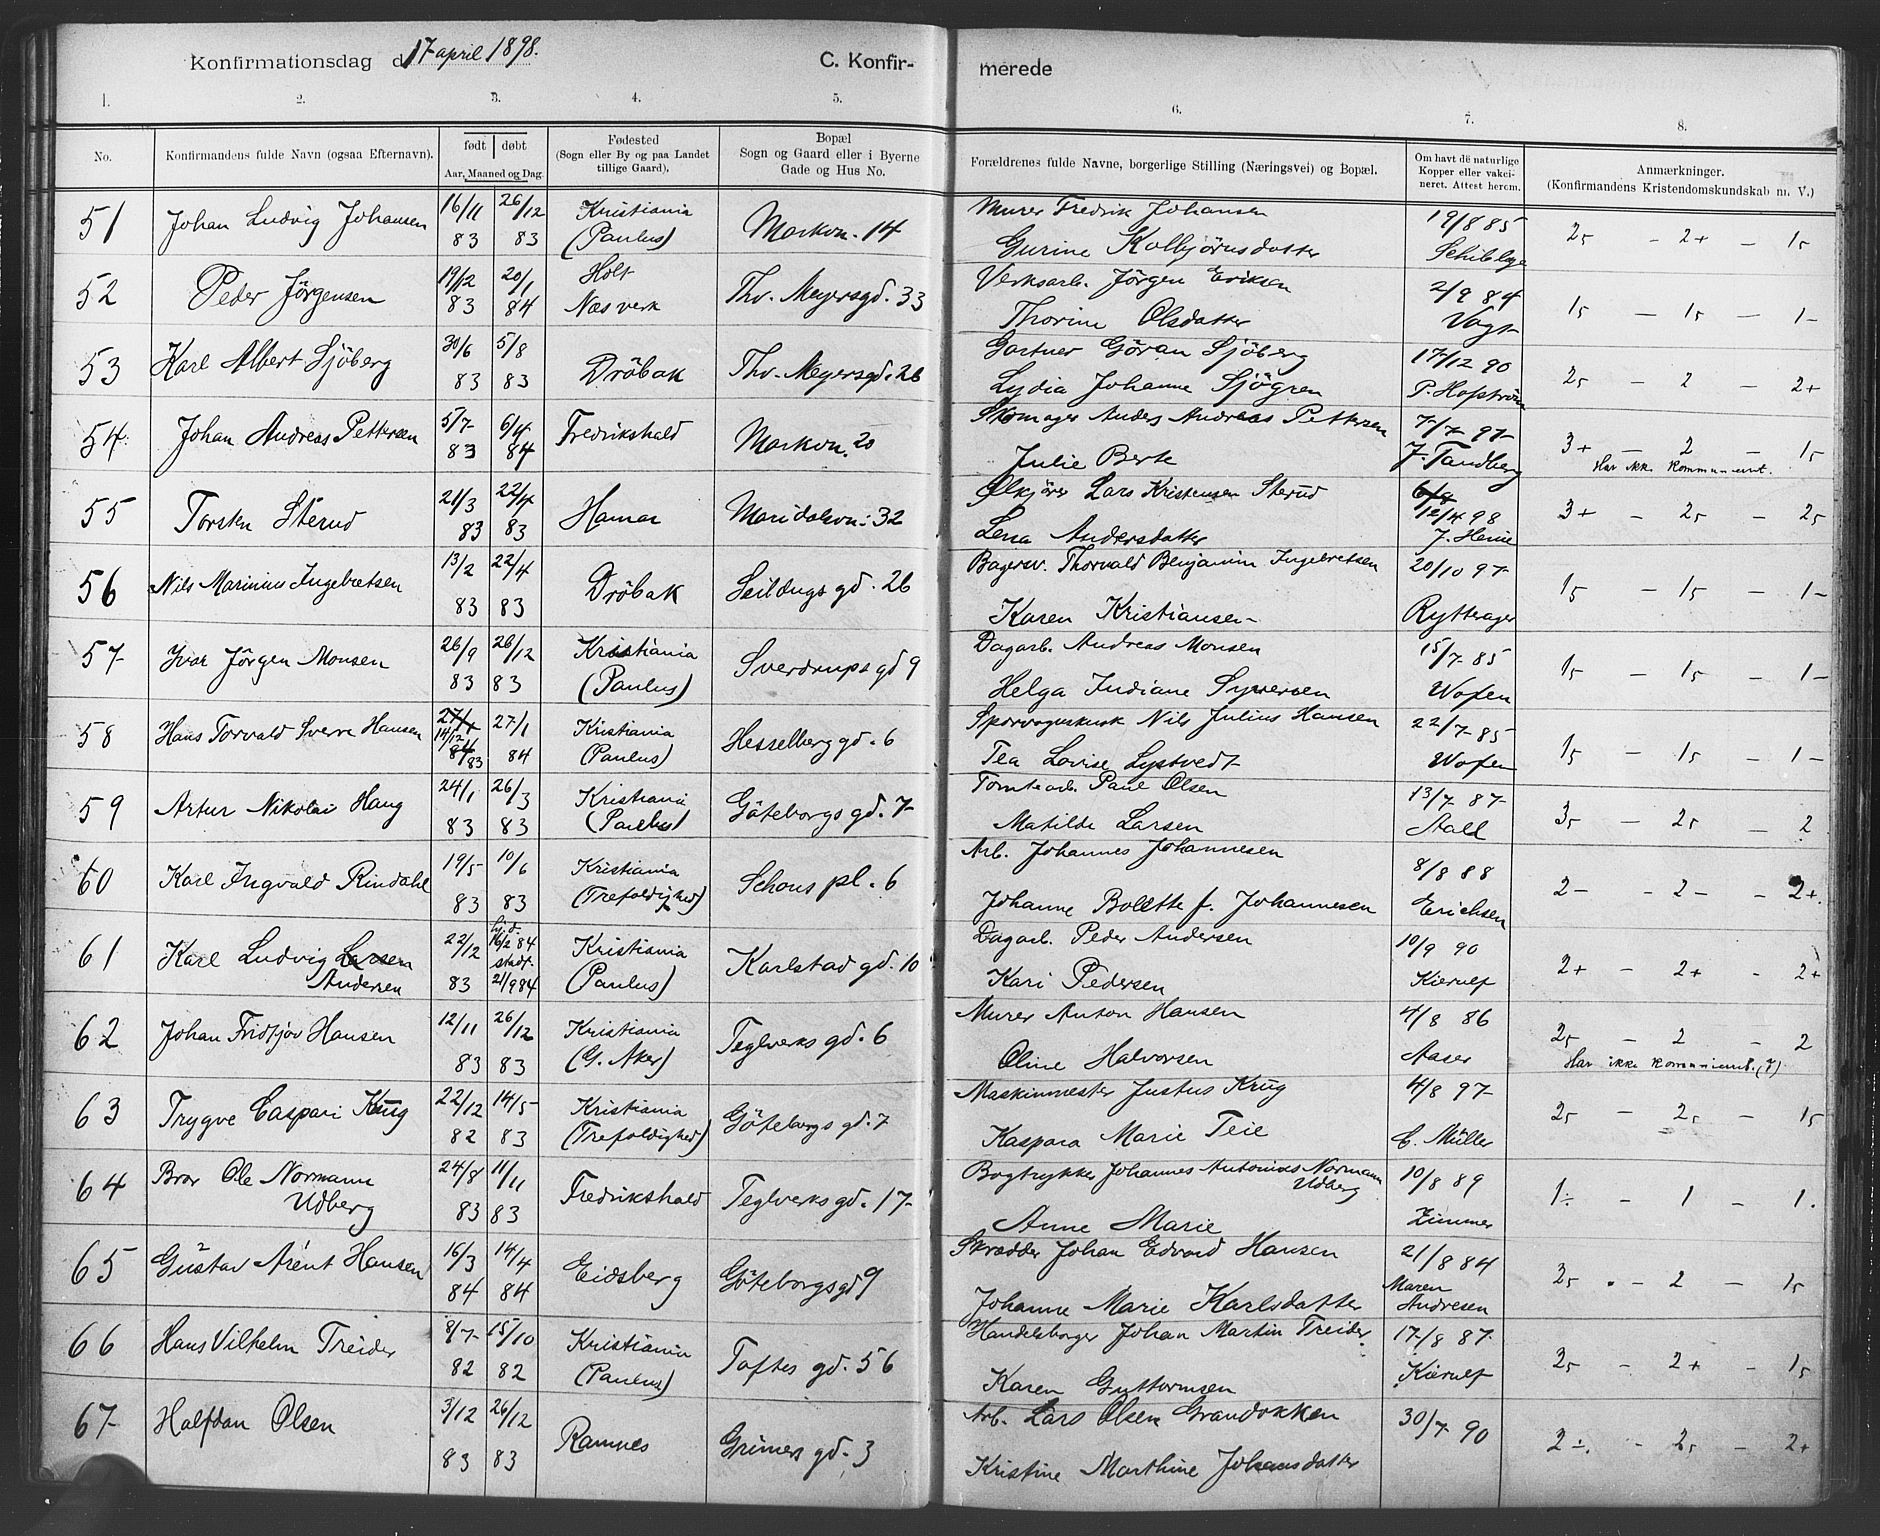 Konfirmationsdag d. 17 april 1898.
C. Konfir-
merede
1. 2. 3. 4. 5. 6. 7. 8.
No.
Konfirmandens fulde Navn (ogsaa Efternavn).
født | døbt
Aar, Maaned og Dag.
Fødested
(Sogn eller By og paa Landet
tillige Gaard).
Bopæl
Sogn og Gaard eller i Byerne
Gade og Hus No.
Forældrenes fulde Navne, borgerlige Stilling (Næringsvei) og Bopæl.
Om havt de naturlige
Kopper eller vakci-
neret. Attest herom.
Anmærkninger.
(Konfirmandens Kristendomskundskab m. V.)
51 Johan Ludvig Johansen 16/11 83 26/12 83 Kristiania (Paulus) Markvn. 14
Murer Fredrik Johansen
Gurine Kolbjørnsdatter
19/8 85
52 Peder Jörgensen 19/12 83 20/1 84 Holt Næs verk Thv. Meyersgd. 33
Verksarb. Jörgen Eriksen
Thorine Olsdatter
2/9 84 Vogt
53 Karl Albert Sjöberg 30/6 83 5/8 83 Dröbak Thv. Meyersgd. 26
Gartner Göran Sjöberg
Lydia Johanne Sjögren
17/12 90 P. Hofström
54 Johan Andreas Pettersen 5/7 83 6/4 84 Fredrikshald Markvn. 20
Skomager Anders Andreas Pettersen
Julie Berte
7/7 97 J. Tandberg
3+ – 2 – 15
Har ikke kommunicert.
55 Torsten Sterud 21/3 83 22/4 83 Hamar Maridalsvn: 32
Ølkjörer Lars Kristensen Sterud
Lena Andersdatter
12/4 98
56 Nils Marinius Ingebretsen 13/2 83 22/4 83 Dröbak Seildugsgd. 26
Bagersv. Thorvald Benjamin Ingebretsen
Karen Kristiansen
20/10 97 Rytterager
57 Ivar Jörgen Monsen 26/9 83 26/12 83 Kristiania (Paulus) Sverdrups gd 9
Dagarb. Andreas Monsen
Helga Indiane Syversen
15/7 85
58 Hans Torvald Sverre Hansen 14/12 83 27/1 84 Kristiania (Paulus) Hesselberg gd. 6
Sporvognskusk Nils Julius Hansen
Tea Lovise Lystvedt
22/7 85
59 Artur Nikolai Haug 24/1 83 26/3 83 Kristiania (Paulus) Göteborgs gd. 7
Tomtearb. Paul Olsen
Matilde Larsen
13/7 87
60 Karl Ingvald Rindahl 19/5 83 10/6 83 Kristiania (Trefoldighed) Schous pl. 6
Arb. Johannes Johannesen
Johanne Bolette f. Johannesen
8/8 88 Erichsen
2– – 2– – 2+.
61 Karl Ludvig Larsen Andersen 22/12 83 hj.d. 16/2 84 stadf. 21/9 84 Kristiania (Paulus) Karlstad gd. 10
Dagarb. Peder Andersen
Kari Pedersen
10/9 90 Kierulf
2+ – 2+ – 2+
62 Johan Fridtjov Hansen 12/11 83 26/12 83 Kristiania (G. Aker) Teglverks gd. 6
Murer Anton Hansen
Oline Halvorsen
4/8 86 Aaser
25 – 2 – 2
Har ikke kommunicert.
63 Trygve Caspari Krug 22/12 82 14/5 83 Kristiania (Trefoldighed) Göteborgs gd. 7
Maskinmester Justus Krug
Kaspara Marie Teie
4/8 97 C. Müller
25 – 25 – 15
64 Bror Ole Normann Udberg 24/8 83 11/11 83 Fredrikshald Teglverks gd. 17
Bogtrykker Johannes Antonius Normann Udberg
Anne Marie
10/8 89 Zimmer
1÷ – 1 – 1.
65 Gustav Arent Hansen 16/3 84 14/4 84 Eidsberg Göteborgsgd 9
Skrædder Johan Edvard Hansen
Johanne Marie Karlsdatter
21/8 84 Maren Andresen
66 Hans Vilhelm Treider 8/7 82 15/10 82 Kristiania (Paulus) Toftes gd. 56
Handelsborger Johan Martin Treider
Karen Guttormsen
17/8 87 Kierulf
25 – 2+ – 15
67 Halfdan Olsen 3/12 83 26/12 83 Ramnes Grüners gd. 3
Arb. Lars Olsen Grandokken
Kristine Marthine Johansdatter
30/7 90
2÷. – 25 – 2+